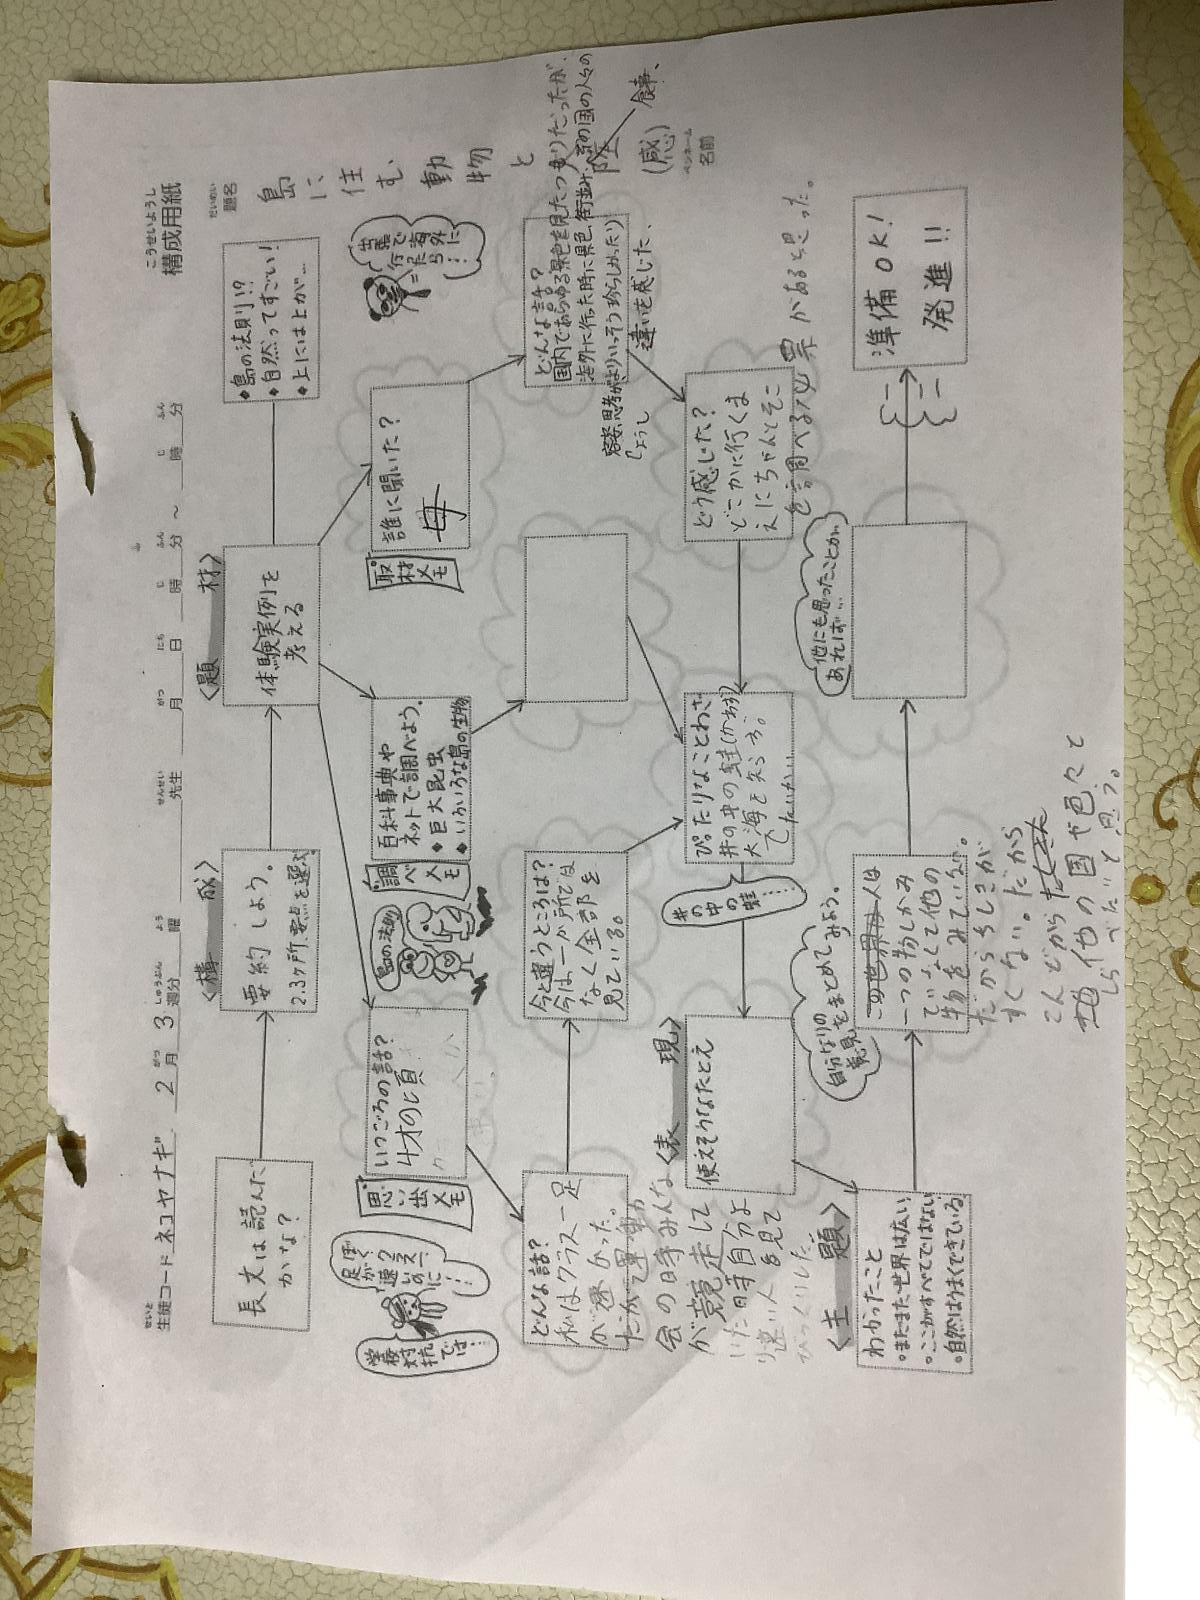 構成用紙
こうせいようし
生徒コード ネコヤナギ 2月 3週分 曜 先生 月 日 時 分 ~ 時 分
題名
島に住む動物と
(感)
ペンネーム
名前
〈構 成〉
〈題 材〉
長文は読んだ
かな?
要約しよう。
2.3ヶ所、要点を選ぶ
体験実例を
考える
◆島の法則!?
◆自然ってすごい!
◆上には上が…
学校対抗では…
ぼく足が速い?
思い出メモ
いつごろの話?
4才の頃
島の法則
調べメモ
百科事典や
ネットで調べよう。
◆巨大昆虫
◆いろいろな島の生物
取材メモ
誰に聞いた?
母
出張で行った海外に…
どんな話?
私はクラス一足
が速かった。
だがて運動
会の時みんな
が競走して
いた時自分よ
り速い人を見て
びっくりした。
今と違うところは?
今は一か所では
なく全部を
見ている。
どんな話?
国内であらゆる景色を見たつもりだったが、
海外に行った時に景色、街並み、
の国の人々の
食事、
違いを感じた、
〈表 現〉
使えそうなたとえ
井の中の蛙……
ぴったりなことわざ
井の中の蛙(かわず)
大海を知らず。
でたいかい
どう感じた?
どこかに行くま
えにちゃんとそこ
を調べる必要があると思った。
〈主 題〉
わかったこと
◦まだまだ世界は広い
◦ここがすべてではない
◦自然はうまくできている
自分なりの
意見をまとめてみよう。
この世界は人は
一つの物しかみ
ていなくて他の
物をみていない。
だからちしきが
すくない。だから
こんどから
他の国や色々と
しらべたいと思う。
他にも思ったことが
あれば…
準備OK!
発進!!